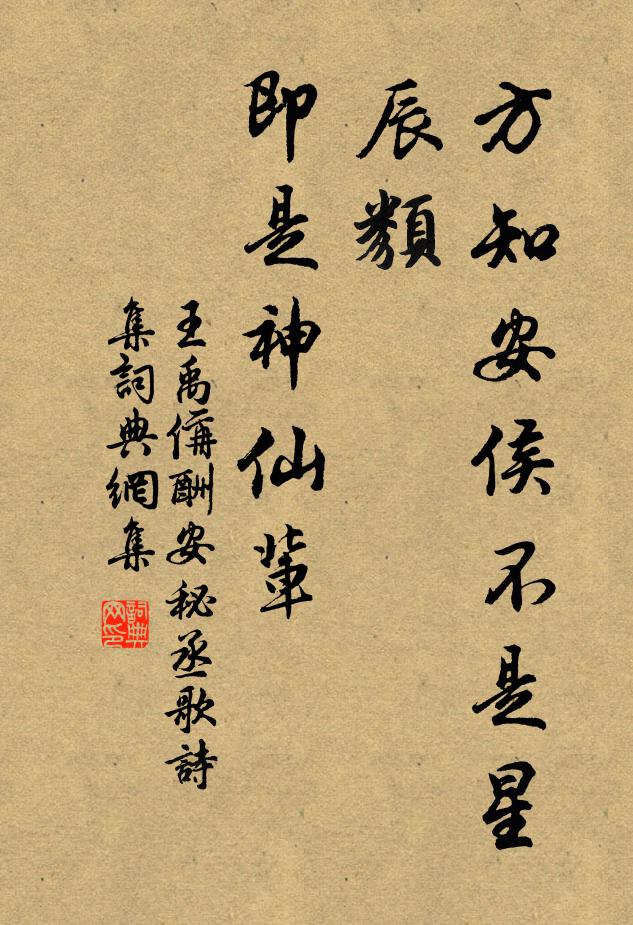 方知安侯不是星
辰類
即是神仙輩
王禹偁酬安秘丞歌詩
集詞典網集
詞典网印